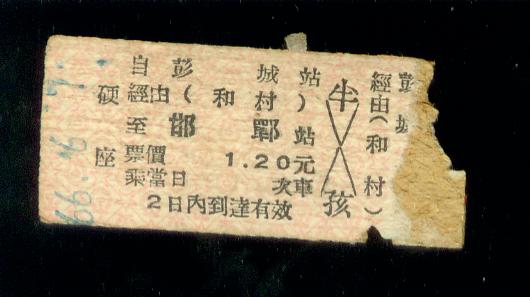 自彭城站
硬 經由(和村)
至邯鄲站
座 票價 1.20元
乘當日 次車
2日內到達有效
半
孩
彭城
經由(和村)